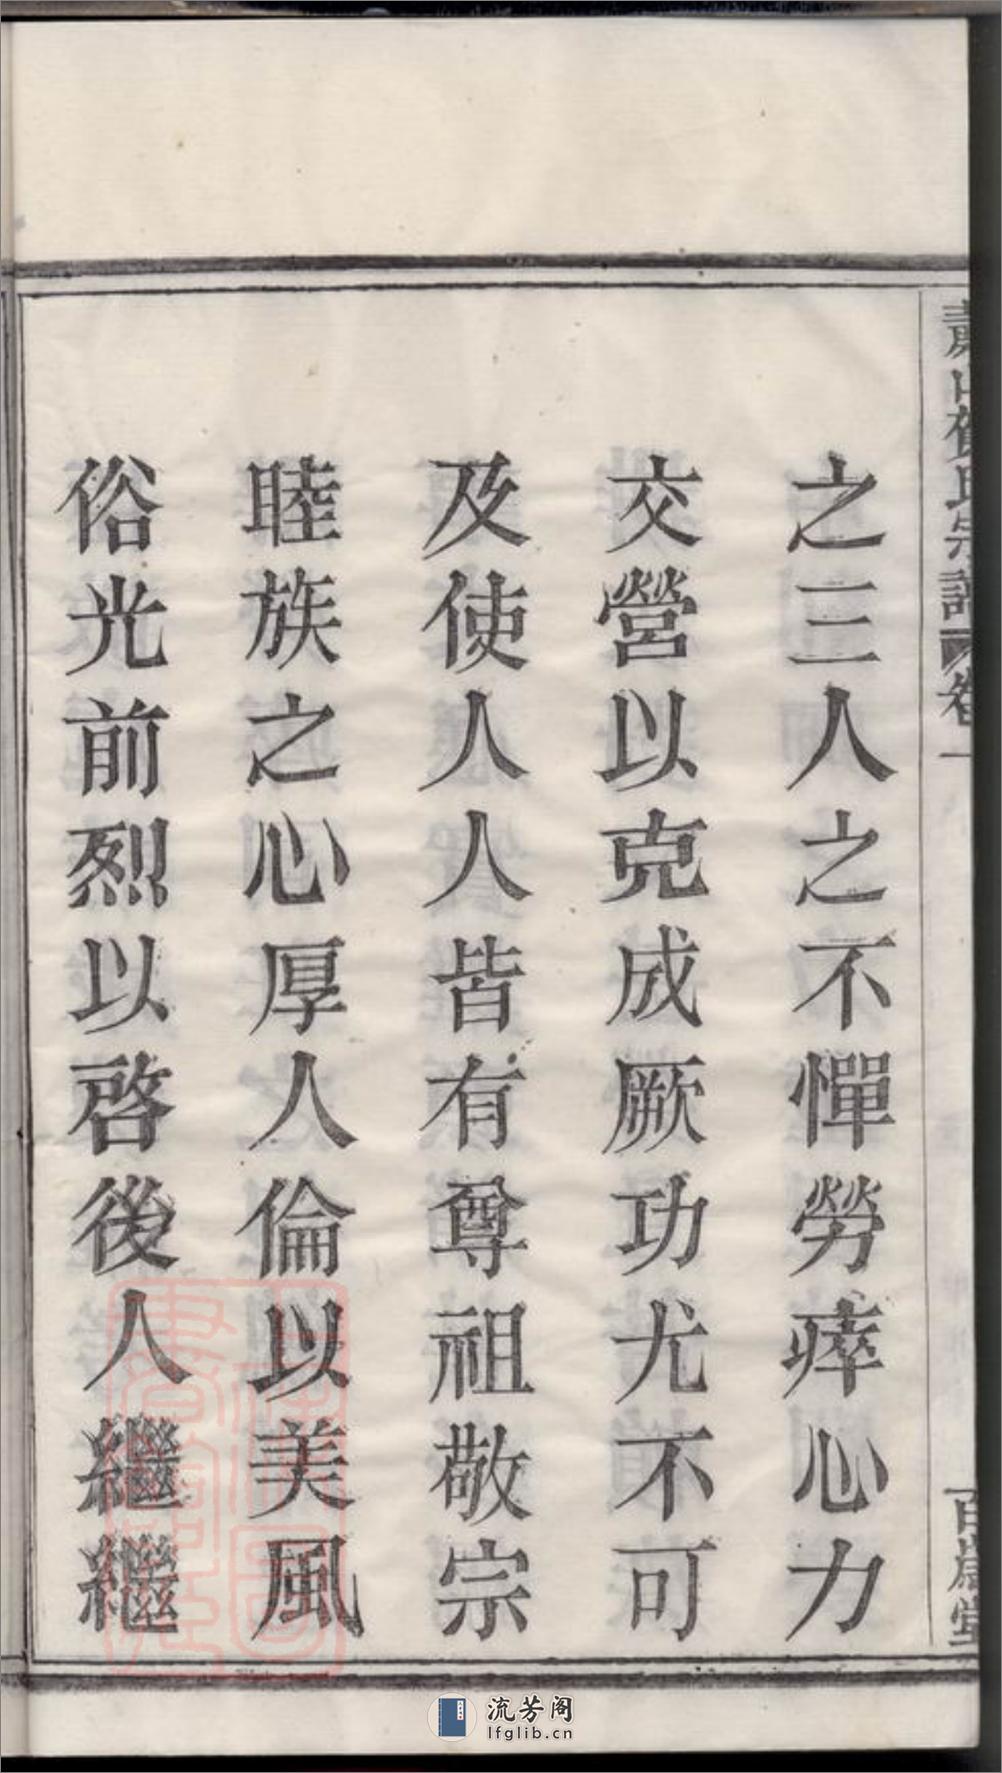 之三人之不憚勞瘁心力
交營以克成厥功尤不可
及使人人皆有尊祖敬宗
睦族之心厚人倫以美風
俗光前烈以啓後人繼繼
氏宗譜 卷一
流芳阁
lfglib.cn